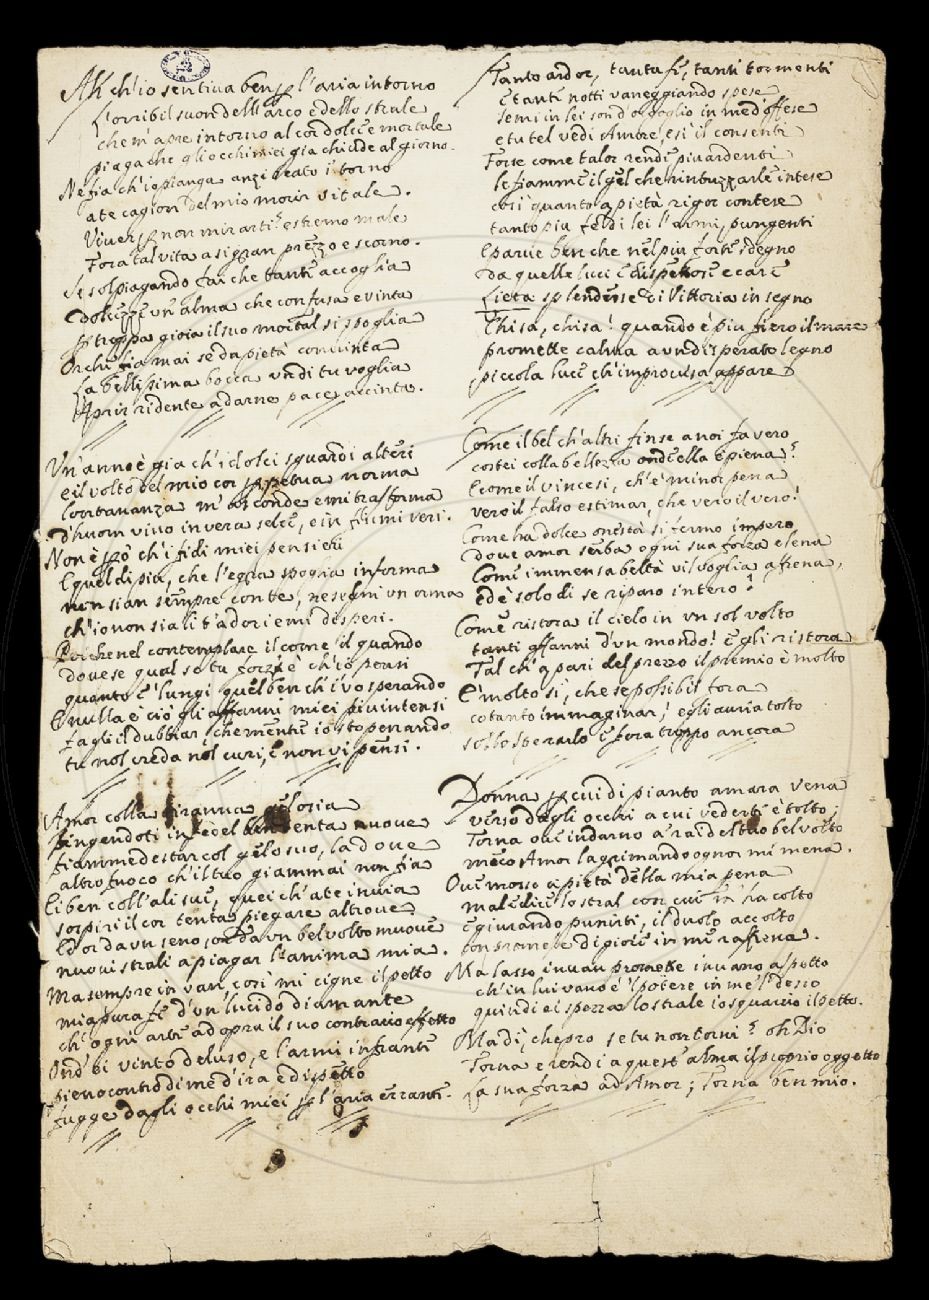 Ah ch'io sentiua ben p l'aria intorno
L'orribil suon dell'arco e dello strale
che m'apre intorno al cor dolce e mortale
piaga che gli occhi miei gia chiude al giorno.
Ne fia ch'io pianga anzi beato i' torno
a te cagion del mio morir vitale.
Viuer p non mirarti è estremo male
Fora tal vita a sì gran prezzo e scorno.
Se sol piagando fai che tanti accoglia
dolcezze un'alma che confusa e vinta
p troppa gioia il suo mortal si spoglia
Or chi fia mai se da pietà conuinta
La bellissima bocca un dì tu voglia
Aprir ridente a darne pace accinta.
Un'anno è gia ch'i dolci sguardi alteri
e il volto del mio cor ppetua norma
lontananza m'asconde e mi trasforma
d'huom vivo in vera selce, e in fiumi veri.
Non è pò ch'i fidi miei pensieri
E quel di piu, che l'egra spoglia informa
non sian sempre con te, ne segni un orma
ch'io non sia lì t'adori e mi disperi.
Perche nel contemplare il come il quando
doue se qual se tu forz'è ch'io pensi
quanto è lungi quel ben ch'i' vo sperando
E nulla è ciò gli affanni miei piu intensi
fagl'il dubbiar, che mentre io sto penando
tu nol creda nol curi, e non vi pensi.
Amor colla tiranna gelosia
fingendoti infedel ben tenta nuove
fiamme destar col gelo suo, la doue
altro fuoco ch'il tuo giammai non fia
E i ben coll'ali sue, quei ch'a te inuia
sospiri il cor tenta piegare altroue
Ed or da un seno, or da un bel volto muoue
nuoui strali a piagar l'anima mia.
Ma sempre in van, così mi cigne il petto
mia pura fe d'un lucido diamante
ch'ogni arte ad oprar il suo contrario effetto
Ond'ei vinto deluso, e l'armi infrante
pieno contro di me d'ira e dispetto
fugge dagli occhi miei p l'aria errante.
Tanto ardor, tanta fe, tanti tormenti
E tante notti vaneggiando spese
semi in lei son d'orgoglio in me d'offese
e tu tel vedi Amore, e sì il consenti
Forse come talor rende piu ardenti
le fiamme il gel che rintuzzarle intese
così quanto a pietà rigor contese
tanto piu fe di lei l'armi pungenti
E parue ben che nel piu forte sdegno
da quelle luci e dispettose e care
Lieta splendesse di Vittoria insegno
Chi sa, chi sa! quando è piu fiero il mare
promette calma a un disperato legno
piccola luce ch'improuisa appare
Come il bel ch'altri finse a noi fa vero
costei colla bellezza ond'ella è piena?
E come il vince sì, ch'è minor pena
vero il falso estimar, che vero il vero!
Come ha dolce onestà sì fermo impero
doue amor serba ogni sua forza e lena
Come immensa beltà vil voglia affrena,
ed è solo di se riparo intero!
Come ristora il cielo in un sol volto
tanti affanni d'un mondo! E gli ristora
Tal ch'a pari del prezzo il premio è molto
E' molto sì, che se possibil fora
cotanto immaginar, egli auria tolto
sol lo sperarlo e fora troppo ancora
Donna p cui di pianto amara vena
verso dagli occhi a cui vederti è tolto;
Torna oue indarno a' rai del tuo bel volto
meco Amor lagrimando ognor mi mena.
Oue mosso a pietà della mia pena
maledice lo stral con cui m'ha colto
E giurando punirti, il duolo accolto
con promesse di gioie in me raffrena.
Ma lasso inuan promette inuano aspetto
ch'in lui vano è 'l potere in me 'l desio
quindi ei spezza lo strale io squarcio il petto.
Ma dì, che pro se tu non torni? oh Dio
Torna e rendi a quest'alma il proprio oggetto
La sua forza ad Amor; Torna ben mio.